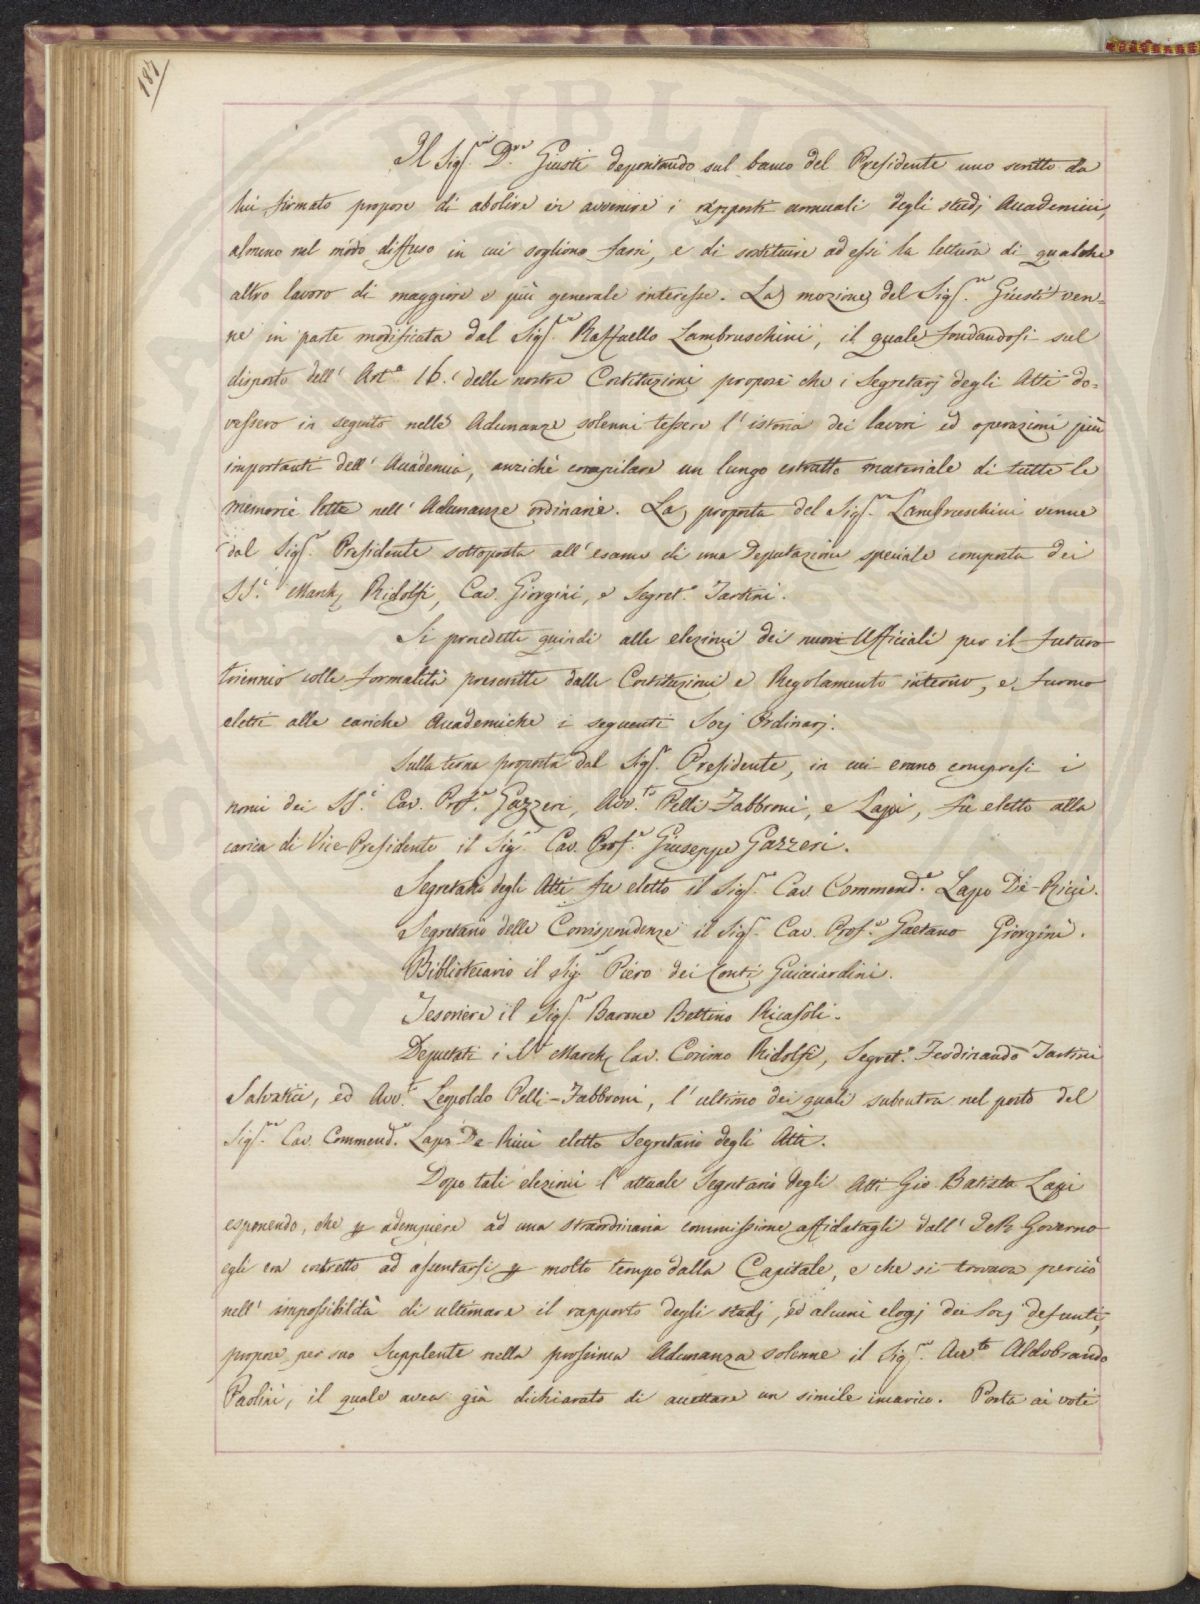 187
Il Sig.r D.re Giusti depositando sul banco del Presidente uno scritto da
lui firmato propose di abolire in avvenire i rapporti annuali degli studj Accademici,
almeno nel modo diffuso in cui sogliono farsi, e di sostituire ad essi la lettura di qualche
altro lavoro di maggiore e più generale interesse. La mozione del Sig.r Giusti ven-
ne in parte modificata dal Sig.r Raffaello Lambruschini, il quale fondandosi sul
disposto dell' Art.o 16.° delle nostre Costituzioni propose che i Segretarj degli Atti do=
vessero in seguito nelle Adunanze solenni tessere l'istoria dei lavori ed operazioni più
importanti dell' Accademia, anziché compilare un lungo estratto materiale di tutte le
memorie lette nell' Adunanze ordinarie. La proposta del Sig.r Lambruschini venne
dal Sig.r Presidente sottoposta all' esame di una Deputazione speciale composta dei
SS.i March. Ridolfi, Cav. Giorgini, e Segret.o Tartini.
Si procedette quindi alle elezioni dei nuovi Ufficiali per il futuro
triennio colle formalità prescritte dalle Costituzioni e Regolamento interno, e furono
eletti alle cariche Accademiche i seguenti Socj Ordinarj.
Sulla terna proposta dal Sig.r Presidente, in cui erano compresi i
nomi dei SS.i Cav. Prof.e Gazzeri, Avv.to Pelli-Fabbroni, e Lapi, fu eletto alla
carica di Vice-Presidente il Sig.r Cav. Prof.e Giuseppe Gazzeri.
Segretario degli Atti fu eletto il Sig.r Cav. Commend.e Lapo De-Ricci.
Segretario delle Corrispondenze il Sig.r Cav. Prof.e Gaetano Giorgini.
Bibliotecario il Sig.r Piero dei Conti Guicciardini.
Tesoriere il Sig.r Barone Bettino Ricasoli.
Deputati i SS.i March. Cav. Cosimo Ridolfi, Segret.o Ferdinando Tartini
Salvatici, ed Avv.to Leopoldo Pelli-Fabbroni, l'ultimo dei quali subentra nel posto del
Sig.r Cav. Commend.e Lapo De-Ricci eletto Segretario degli Atti.
Dopo tali elezioni l'attuale Segretario degli Atti Gio. Batista Lapi
esponendo, che p adempiere ad una straordinaria commissione affidatagli dall' I e R Governo
egli era costretto ad assentarsi p molto tempo dalla Capitale, e che si trovava perciò
nell' impossibilità di ultimare il rapporto degli studj, ed alcuni elogj dei Socj defunti,
propose per suo Supplente nella prossima Adunanza solenne il Sig.r Avv.to Aldobrando
Paolini, il quale avea già dichiarato di accettare un simile incarico. Posta ai voti